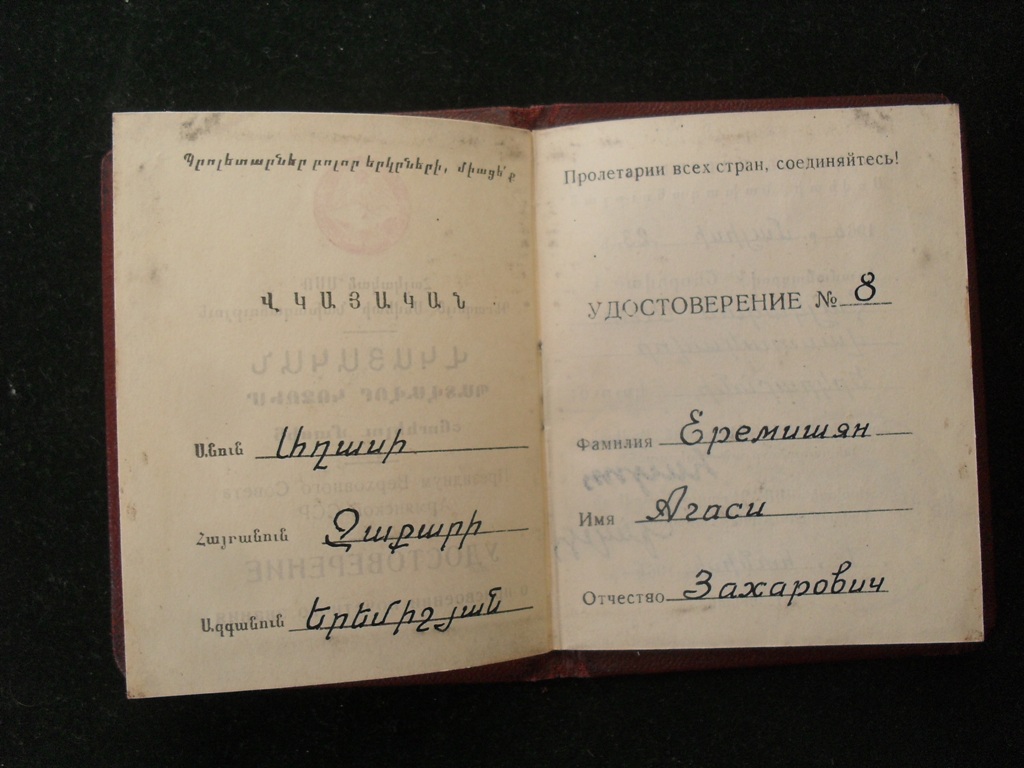 Պրոլետարներ բոլոր երկրների, միացե՛ք
ՎԿԱՅԱԿԱՆ
Անուն Աղասի
Հայրանուն Զաքարի
Ազգանուն Երեմիշյան
Пролетарии всех стран, соединяйтесь!
УДОСТОВЕРЕНИЕ № 8
Фамилия Еремишян
Имя Агаси
Отчество Захарович